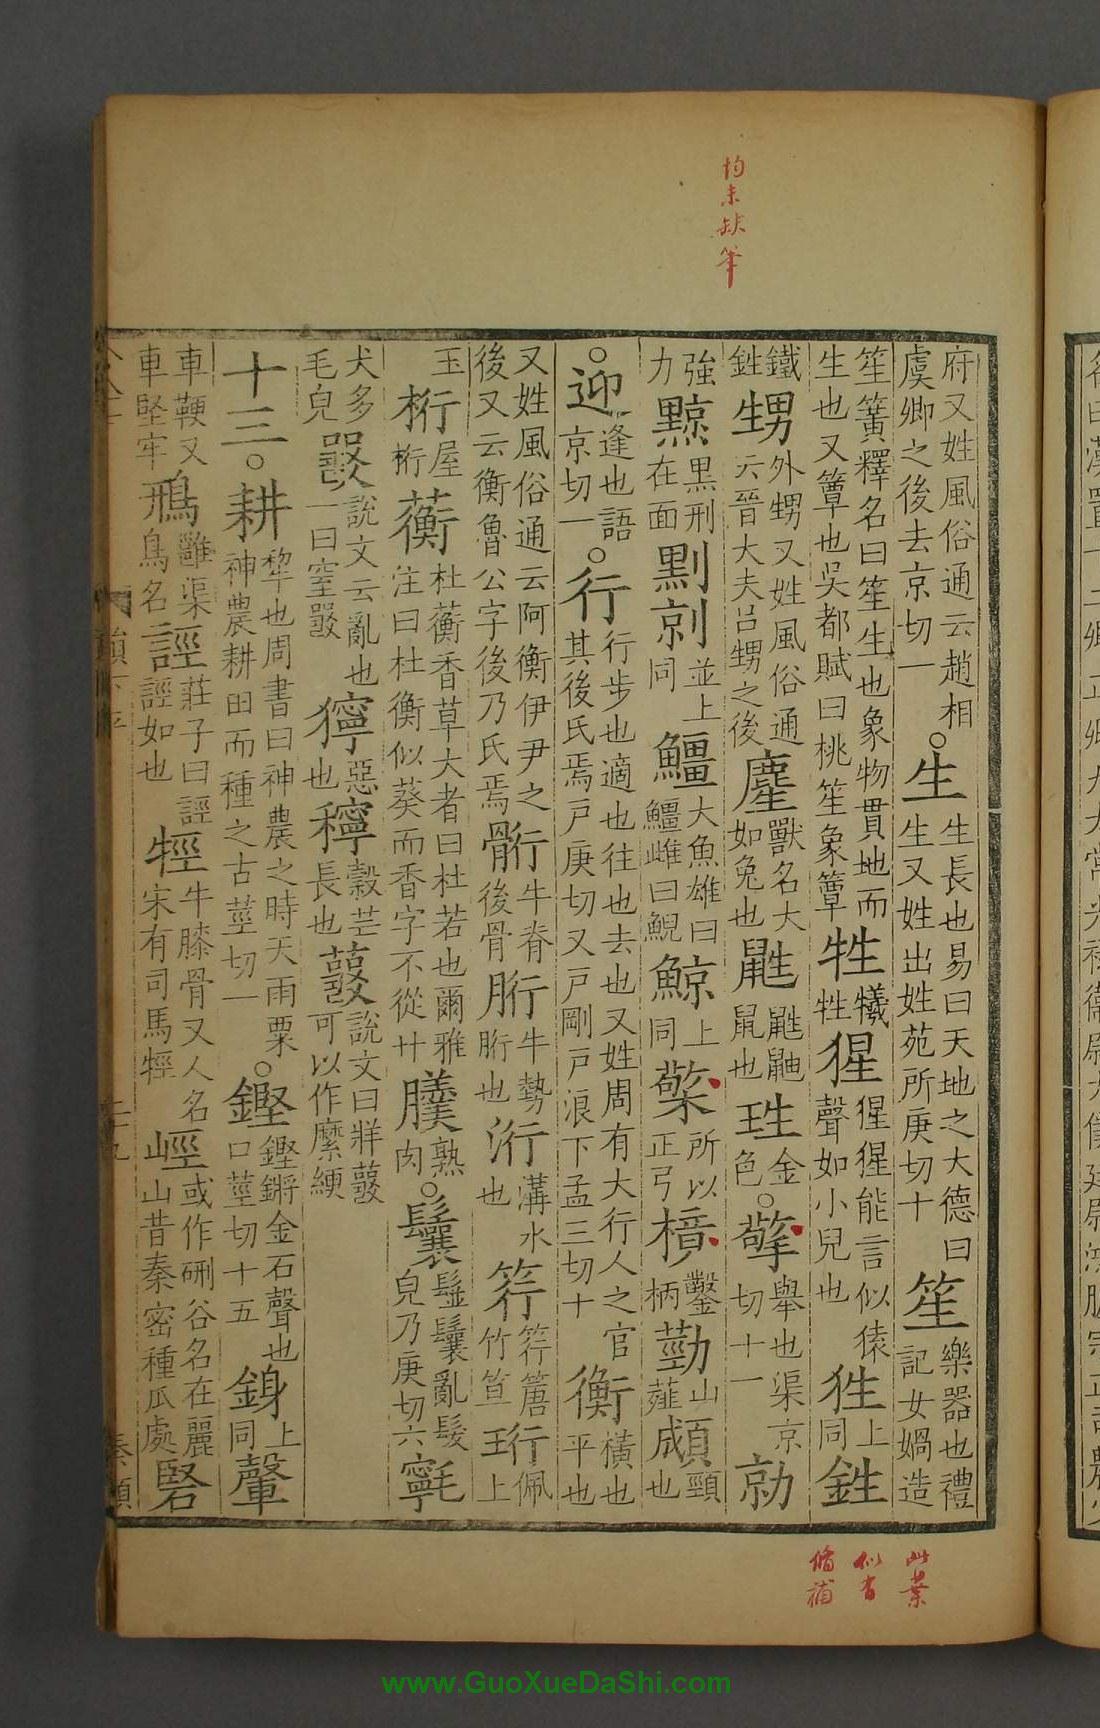 均未缺筆
府又姓風俗通云趙相虞卿之後去京切一○生生長也易曰天地之大德曰生又姓出姓苑所庚切十笙樂器也禮記女媧造
笙簧釋名曰笙生也象物貫地而生也又簟也吳都賦曰桃笙象簟牲犧牲猩猩猩能言似猿聲如小兒也狌上同鉎
鐵鉎甥外甥又姓風俗通云晉大夫呂甥之後麈獸名大如兔也鼪鼪鼬鼠也珄金色○擎舉也渠京切十一勍
強力黥黑刑在面剠剠並上同䲔大魚雄曰䲔雌曰鯢鯨上同檠所以正弓橩鑿柄葝山薤𩓨頸也
○迎逢也語京切一○行行步也適也往也去也又姓周有大行人之官其後氏焉戶庚切又戶剛戶浪下孟三切十衡橫也平也
又姓風俗通云阿衡伊尹之後又云衡魯公字後乃氏焉䯒牛脊後骨胻牛勢胻也洐溝水也筕筕篖竹笪珩佩上
玉桁屋桁蘅杜蘅香草大者曰杜若也爾雅注曰杜衡似葵而香字不從廾䐵熟肉○鬤鬇鬤亂髮皃乃庚切六䆨
犬多毛皃㲌說文云亂也一曰窒㲌獰惡也䆨穀芒長也䕲說文曰牂䕲可以作縻綆
十三○耕犂也周書曰神農之時天雨粟神農耕田而種之古莖切一○鏗鏗鏘金石聲也口莖切十五鏗上同鞏
車鞕又車堅牢鳽鳥名雝渠誙莊子曰誙誙如也牼牛膝骨又人名宋有司馬牼硜或作硎谷名在麗山昔秦密種瓜處硻
廣韻下平
二十九
秦顯
此葉
似有
脩補
www.GuoXueDaShi.com